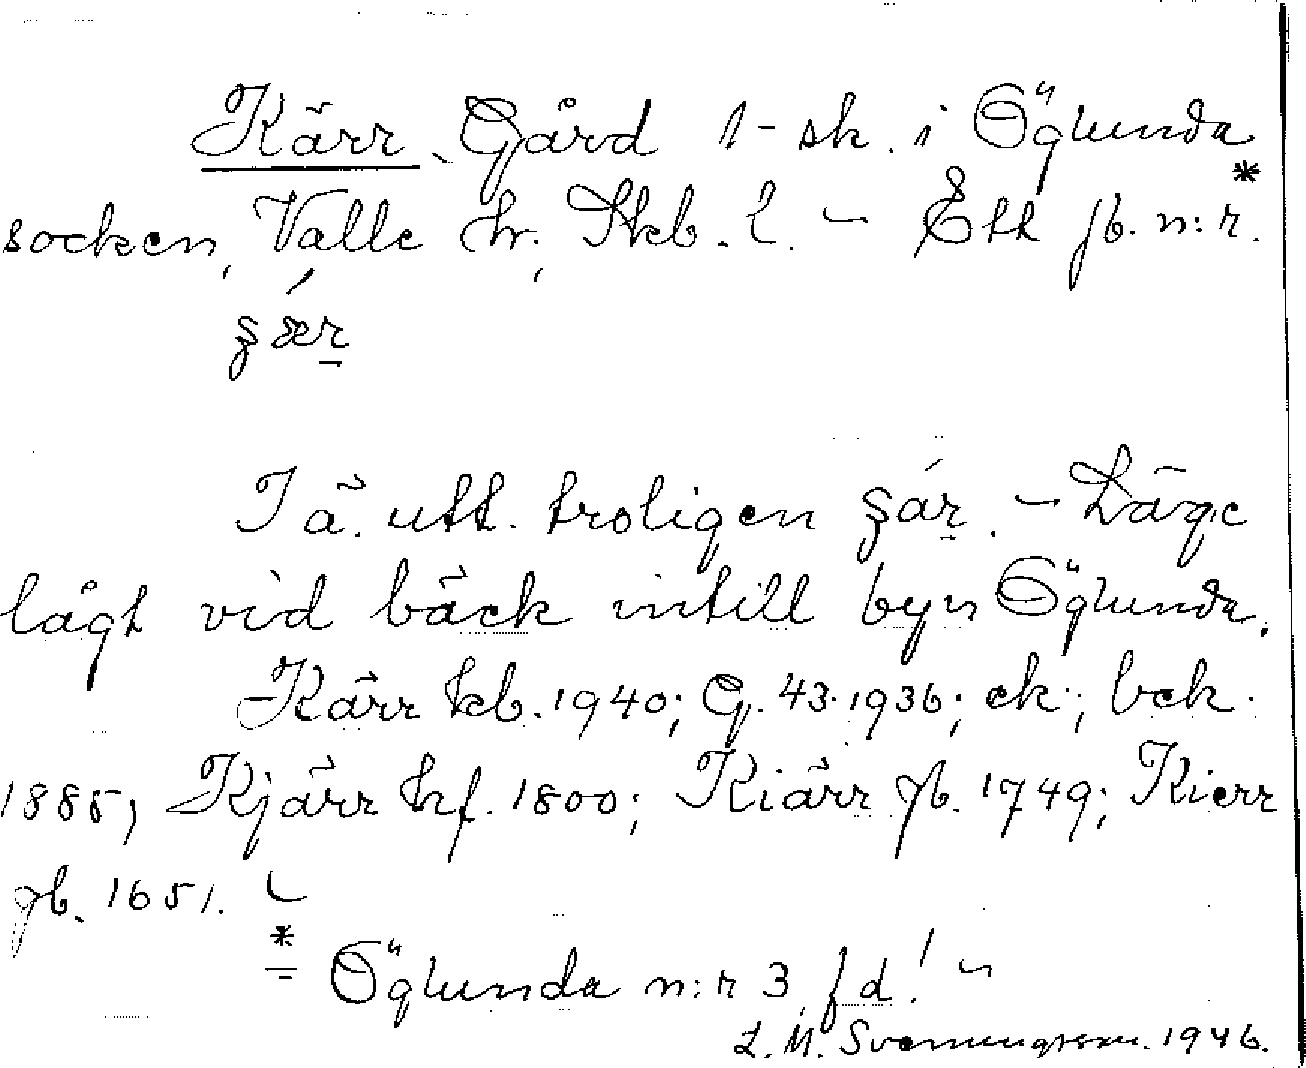 Kärr, Gård 1-sk. i Öglunda
socken, Valle hr, Skb. l. - Ett jb. n:r. *
şær
I ä. utt. troligen şár. - Läge
lågt vid bäck intill byn Öglunda.
Kärr kb. 1940; G. 43. 1936; ek.; bek.
1885; Kjärr hf. 1800; Kiärr jb. 1749; Kierr
jb. 1651. -
* = Öglunda n:r 3 fd! -
L. M. Svenungsson. 1946.